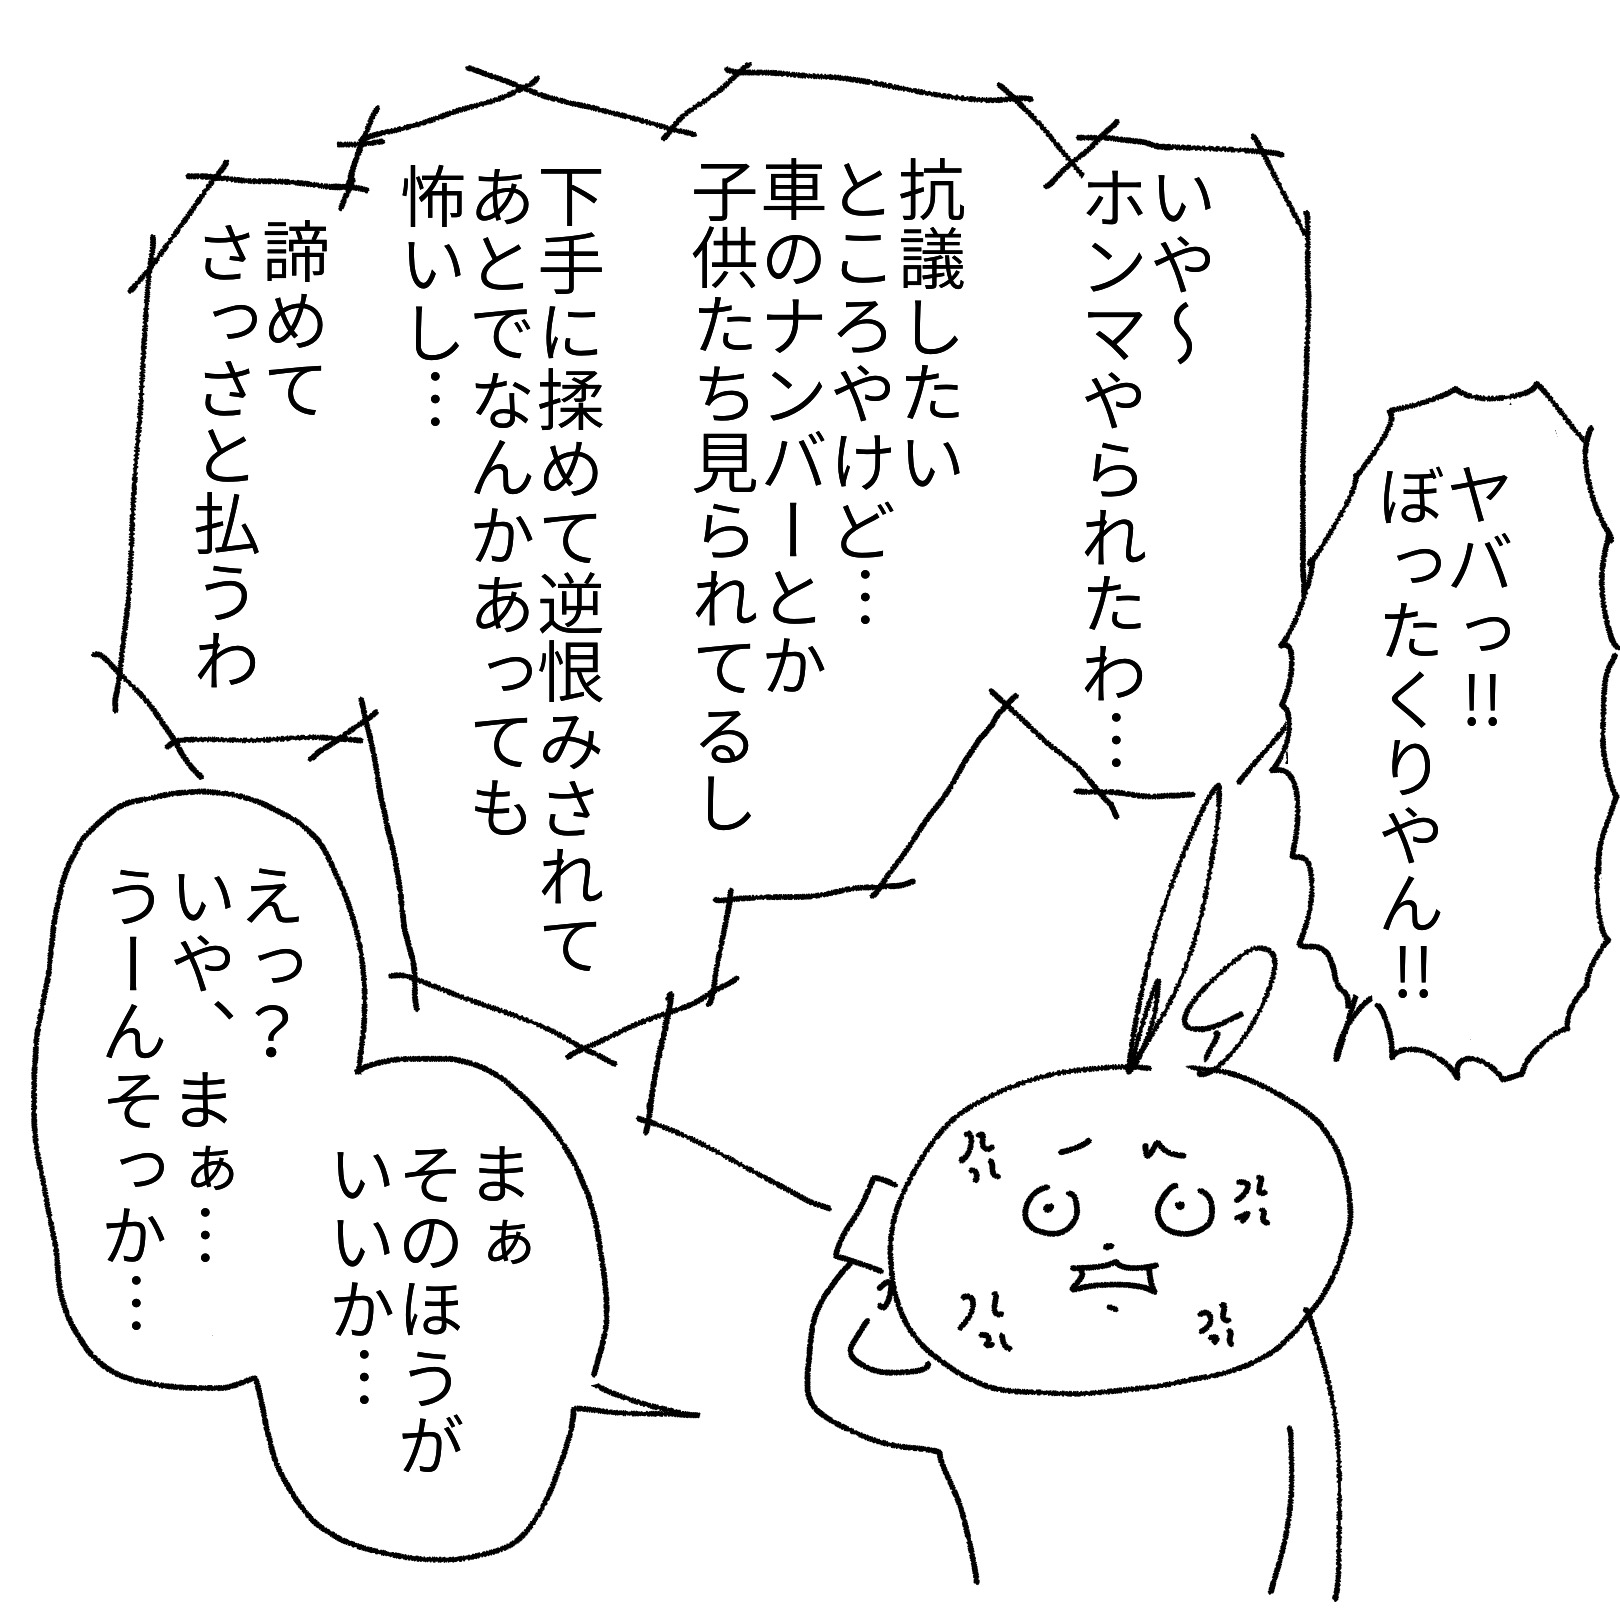 ヤバっ!!
ぼったくりやん!!
いや～
ホンマやられたわ…
抗議したい
ところやけど…
車のナンバーとか
子供たち見られてるし
下手に揉めて逆恨みされて
あとでなんかあっても
怖いし…
諦めて
さっさと払うわ
えっ？
いや、まぁ…
うーんそっか…
まぁ
そのほうが
いいか…